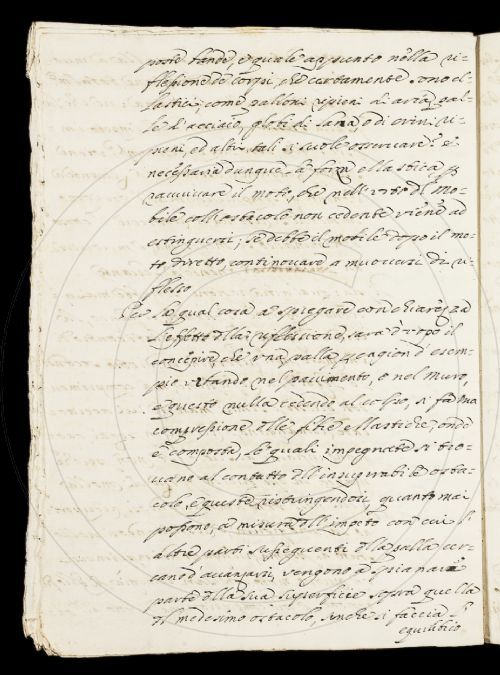 poste bande, e quale appunto nella ri-
flessione de corpi, che certamente sono el-
lastici, come palloni ripieni di aria, pal-
le d'acciaio, globi di lana, o di crini ri-
pieni, ed altri tali si suole osservare. è
necessaria dunque la forza ellastica p
ravvivare il moto, che nell'urto del mo-
bile coll'ostacolo non cedente viene ad
estinguersi, se debbe il mobile dopo il mo-
to diretto continovare a muoversi di ri-
flesso
Per la qual cosa a spiegare con chiarezza
l'effetto dlla riflessione, sarà d'uopo il
concepire, che una palla p cagion d'esem-
pio urtando nel pavimento, o nel muro,
e questo nulla cedendo al colpo, si fà una
compressione dlle fibre ellastiche, onde
è composta, le quali impegnate si tro-
vano al contatto dll'insuperabile osta-
colo, e queste ristringendosi quanto mai
possono, a misura dll'impeto con cui l'
altre parti susseguenti dlla palla cer-
cano d'avanzarsi, vengono a spianare
parte dlla sua superficie sopra quella
dl medesimo ostacolo, finche si faccia l'
equilibrio